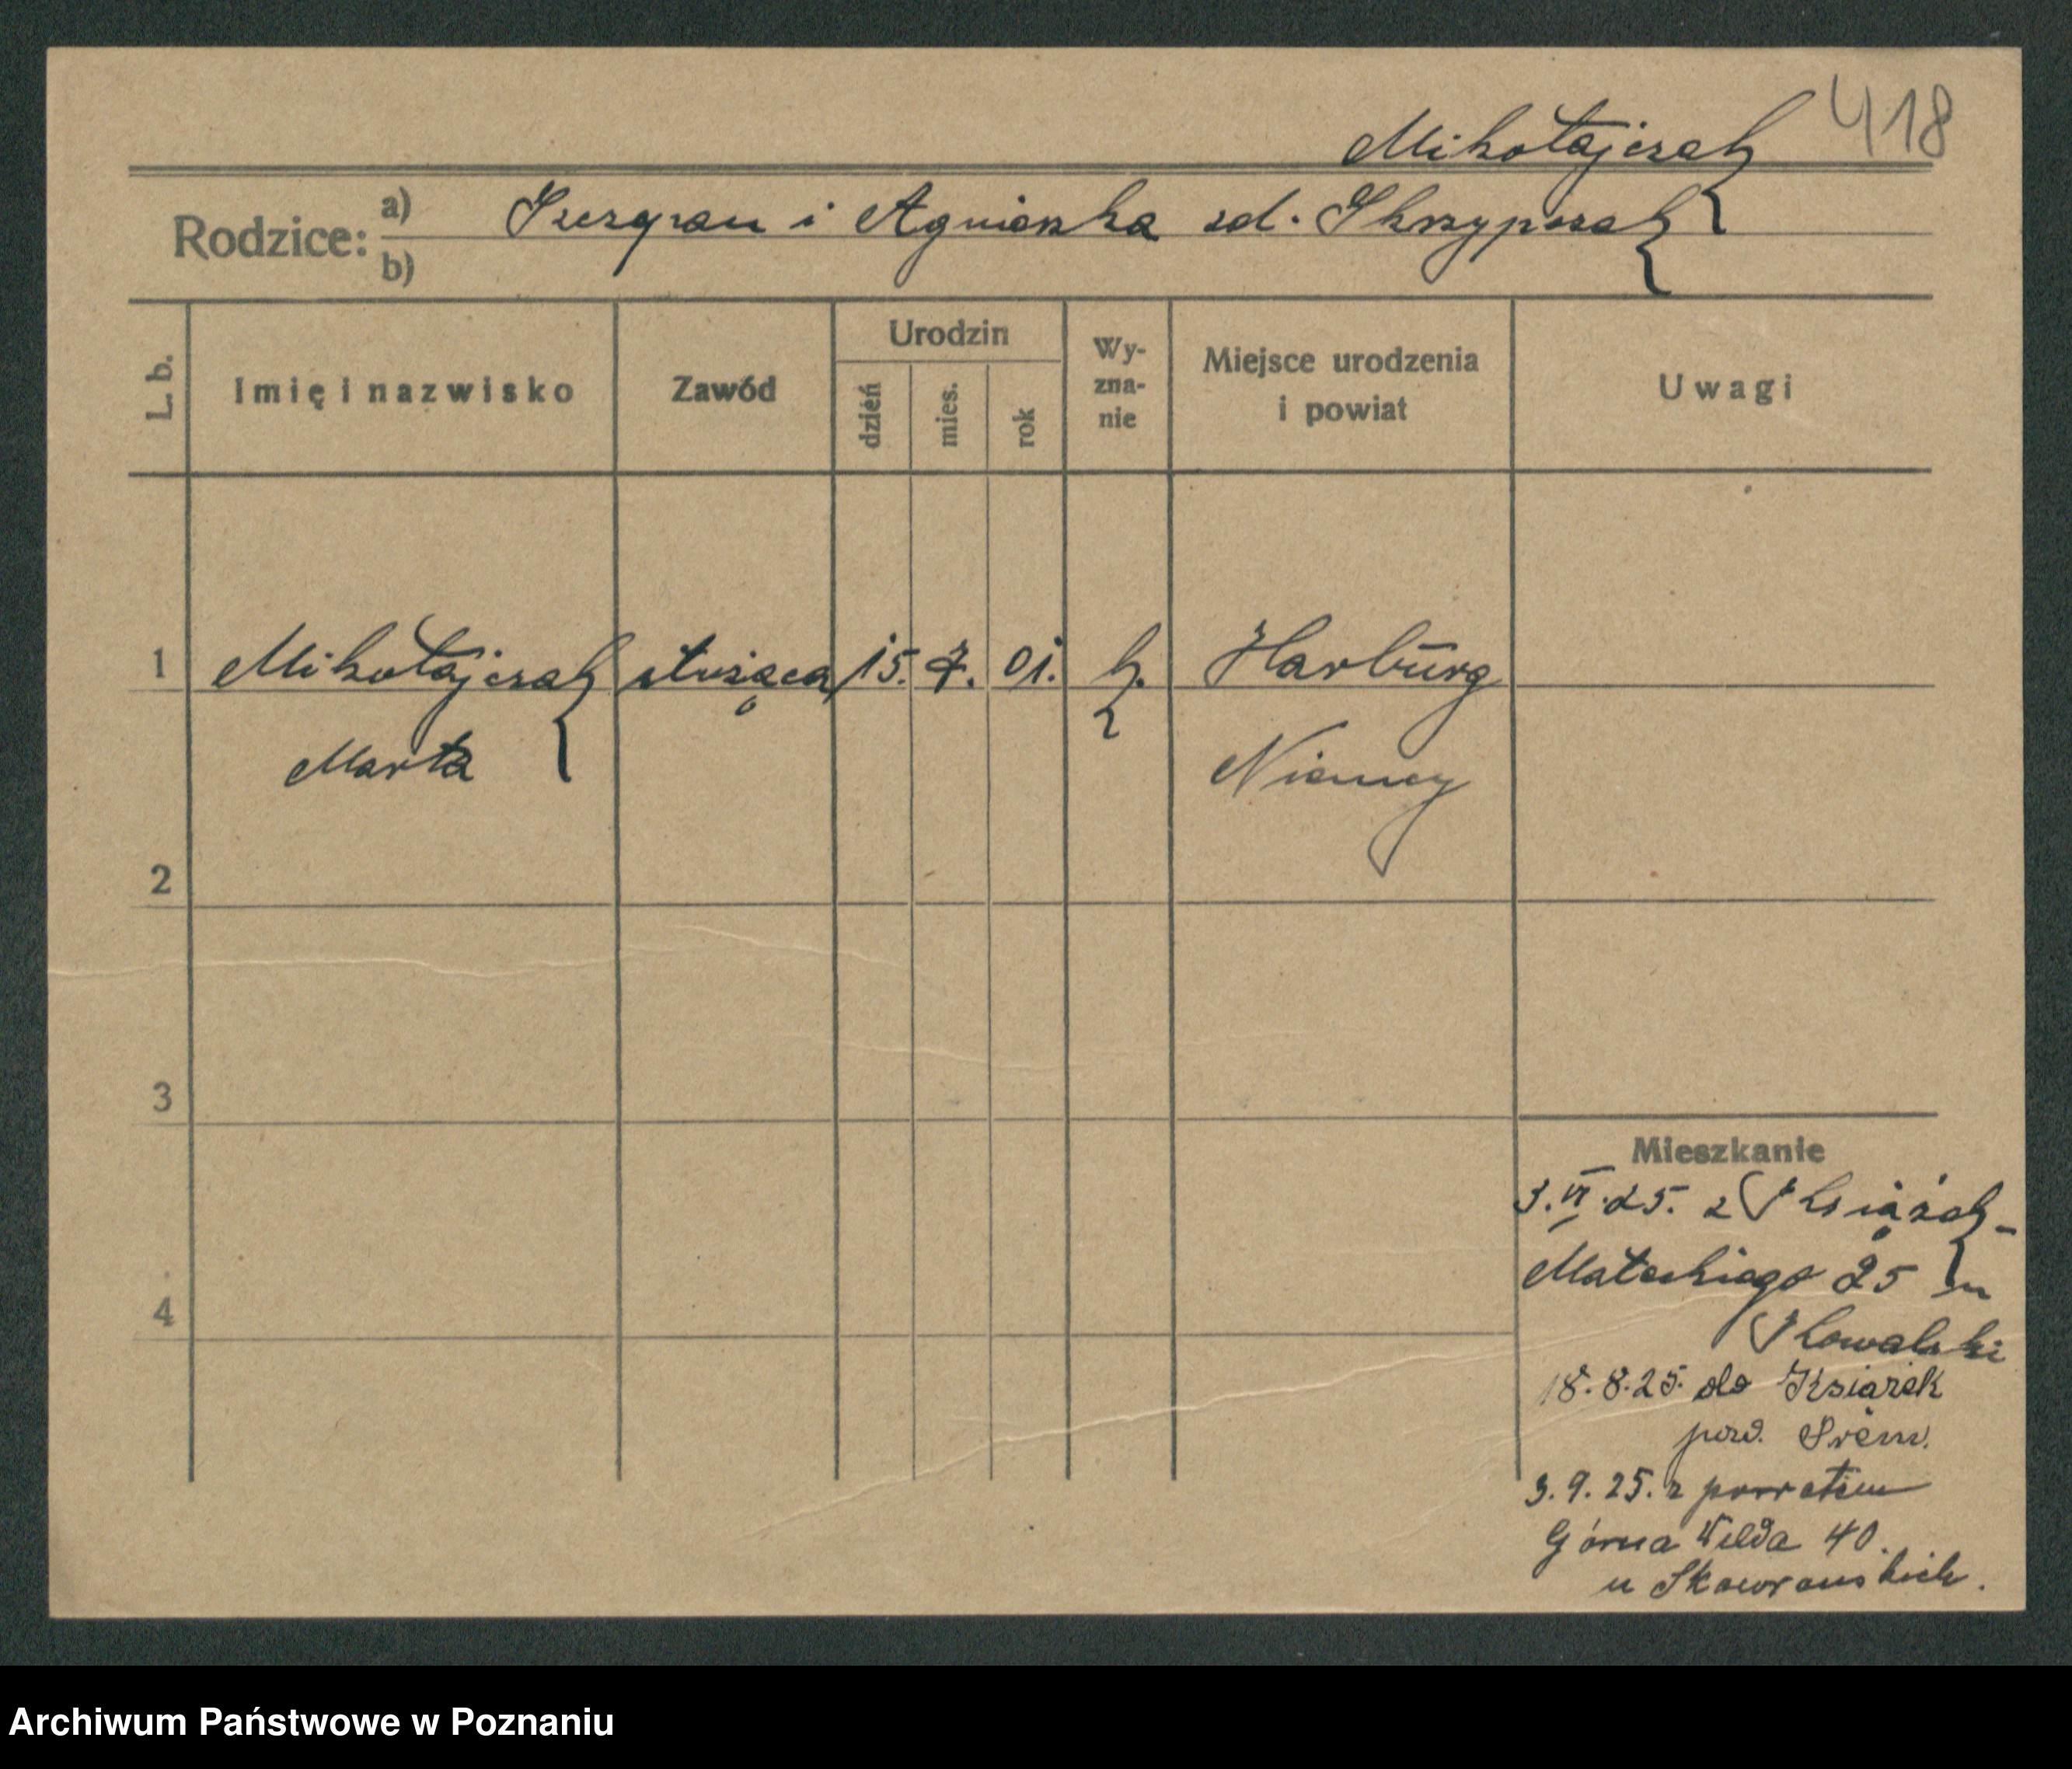 418
Mikołajczak
Rodzice: a) Szczepan i Agnieszka zd. Skrzypczak
b)
L. b. Imię i nazwisko Zawód Urodzin dzień mies. rok Wy-zna-nie Miejsce urodzenia i powiat Uwagi
1 Mikołajczak służąca 15. 7. 01. k. Harburg
Marta Niemcy
2
3
4
Mieszkanie
3.VI.25. z Książek
Małeckiego 25 u
Kowalski
18.8.25. do Książek
pow. Śrem.
3.9.25. z powrotem
Górna Wilda 40.
u Skowrońskich.
Archiwum Państwowe w Poznaniu